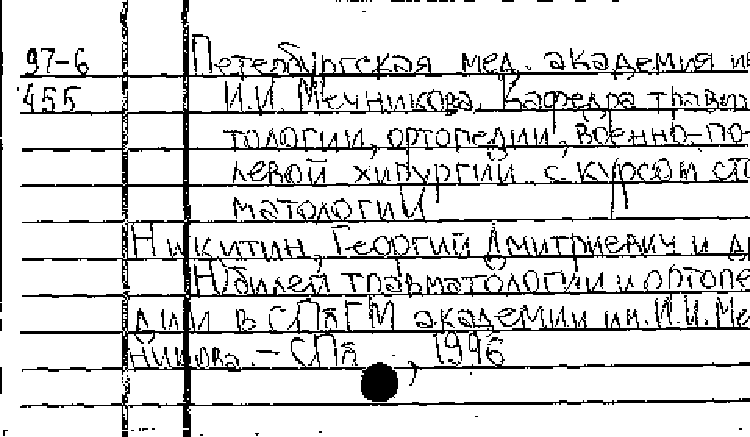 97-6 Петербургская мед. академия им
455 И.И. Мечникова. Кафедра травма
тологии, ортопедии, военно-по-
левой хирургии с курсом сто
матологии
Никитин, Георгий Дмитриевич и др
Юбилей травматологии и ортопе
дии в СПбГМ академии им. И.И. Ме
чникова. - СПб, 1996